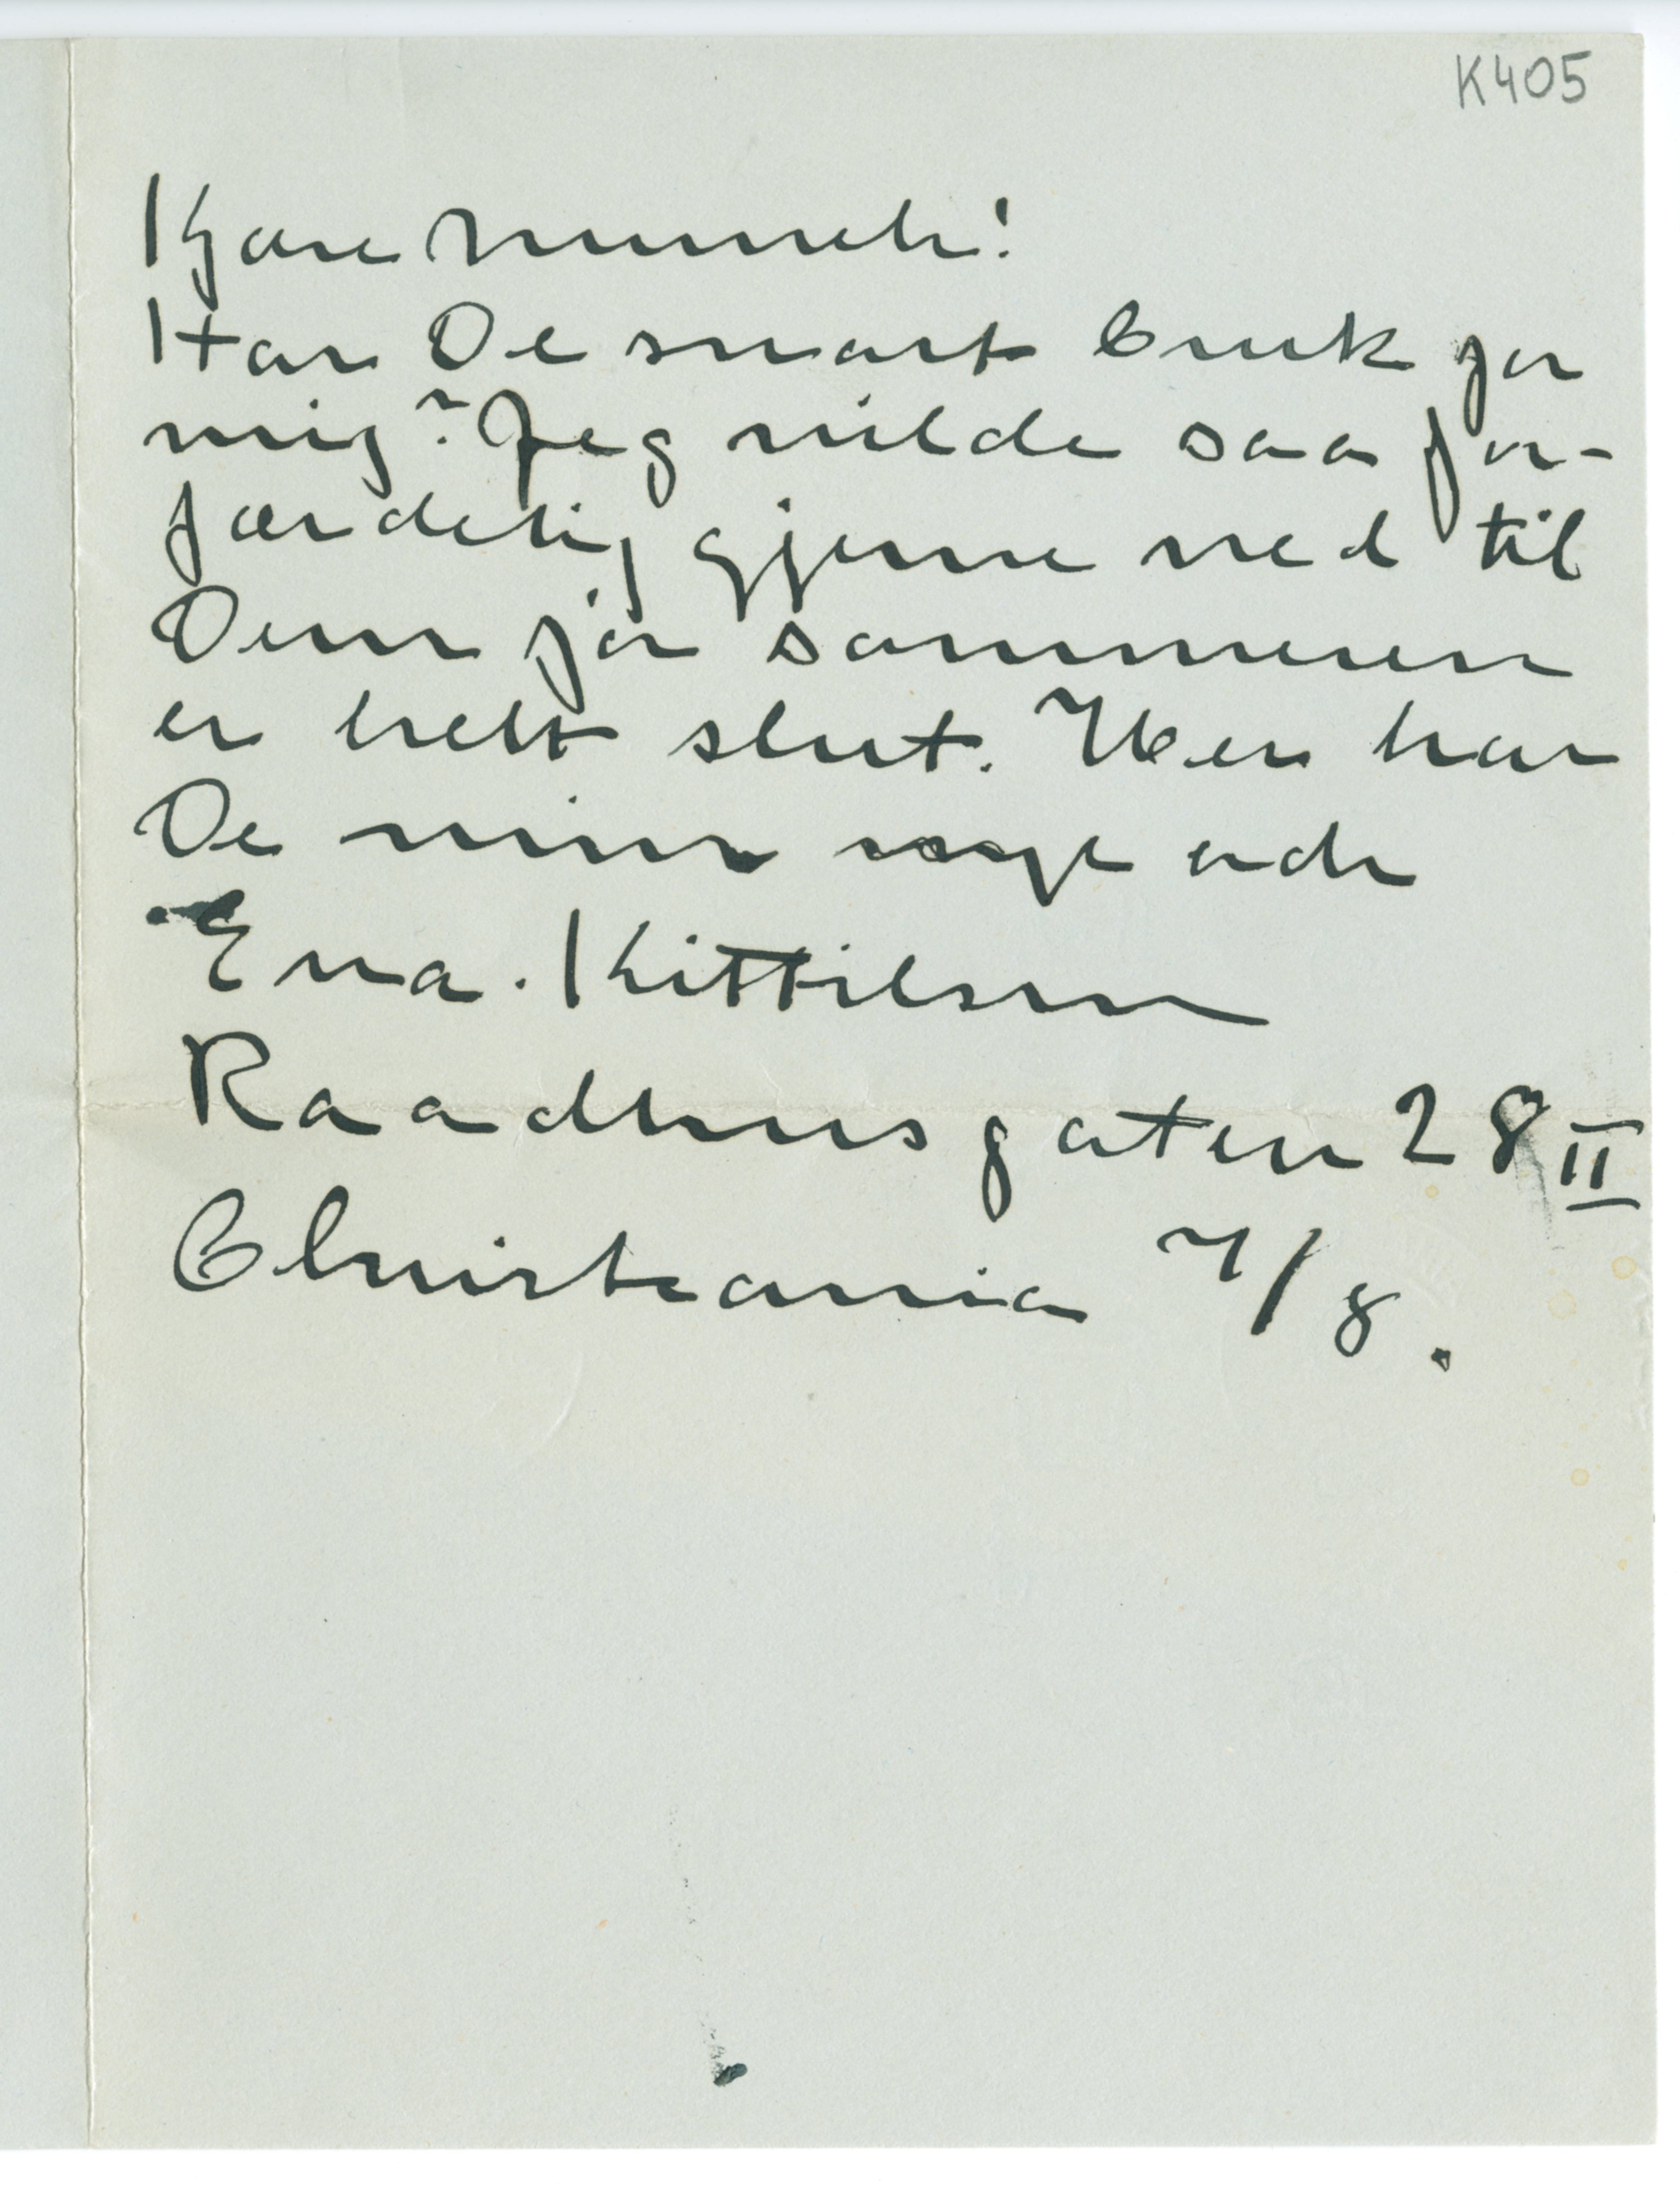 K405
Kjære Munch!
Har De snart bruk for
mig? Jeg vilde saa for-
færdelig gjerne ned til
Dem før sommeren
er helt slut. Her har
De min nye adr
Eva. Kittilsen
Raadhusgaten 28 II
Christiania 7/8.